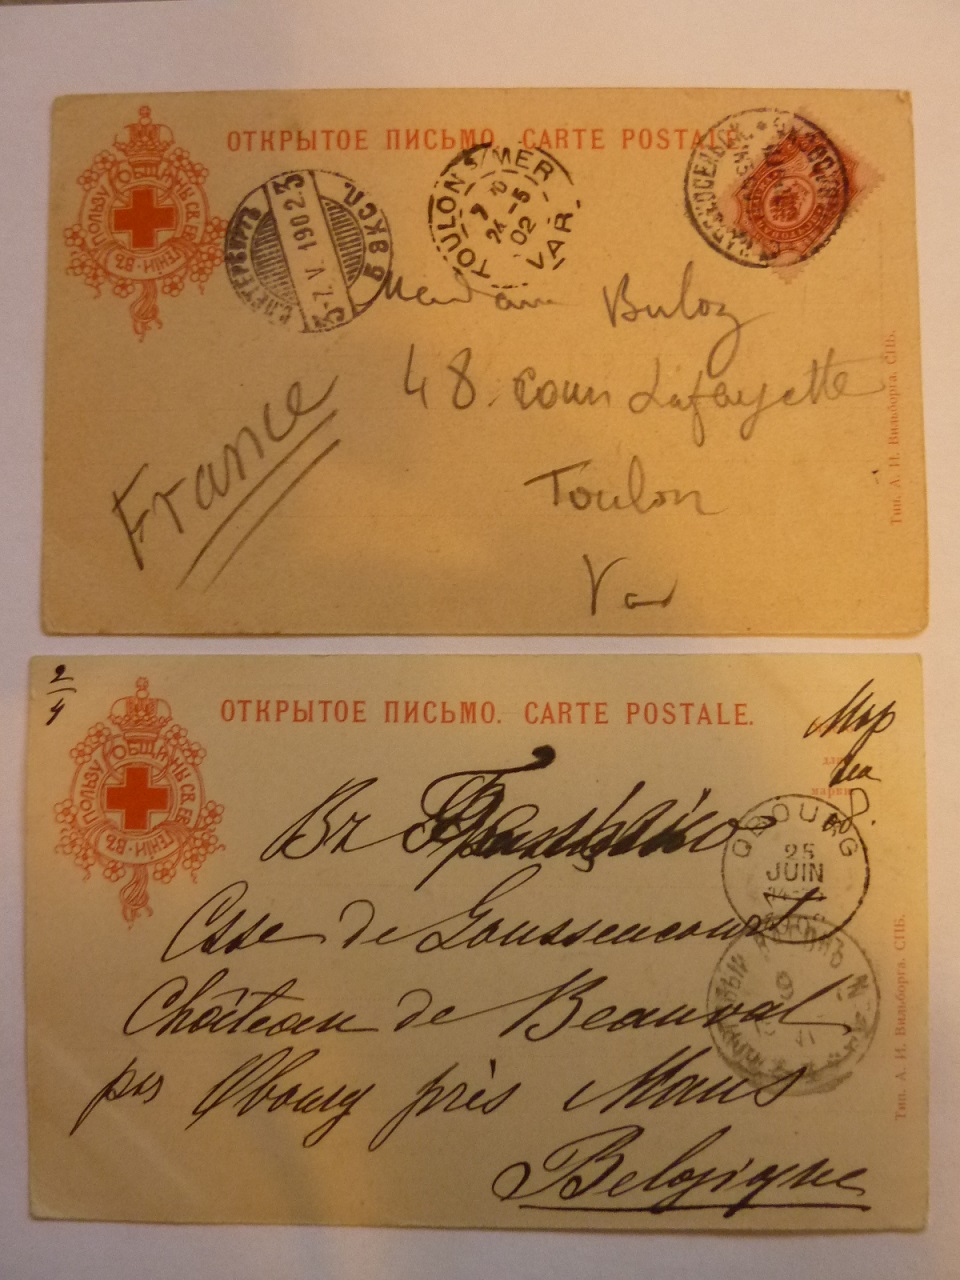 ОТКРЫТОЕ ПИСЬМО. CARTE POSTALE.
ВЪ ПОЛЬЗУ ОБЩИНЫ СВ. ЕВГЕНІИ
С.ПЕТЕРБУРГЪ
3-7.V.1902.3
ЭКСП.
TOULON S/MER
24 -5
02
VAR
Madame Buloz
48 cours Lafayette
Toulon
Var
France
Тип. А. И. Вильборга. СПБ.
2/4
ОТКРЫТОЕ ПИСЬМО. CARTE POSTALE.
ВЪ ПОЛЬЗУ ОБЩИНЫ СВ. ЕВГЕНІИ
для
марки
Въ
OBOURG
25
JUIN
Csse de Goussencourt
Château de Beauval
par Obourg près Mons
Belgique
Тип. А. И. Вильборга. СПБ.